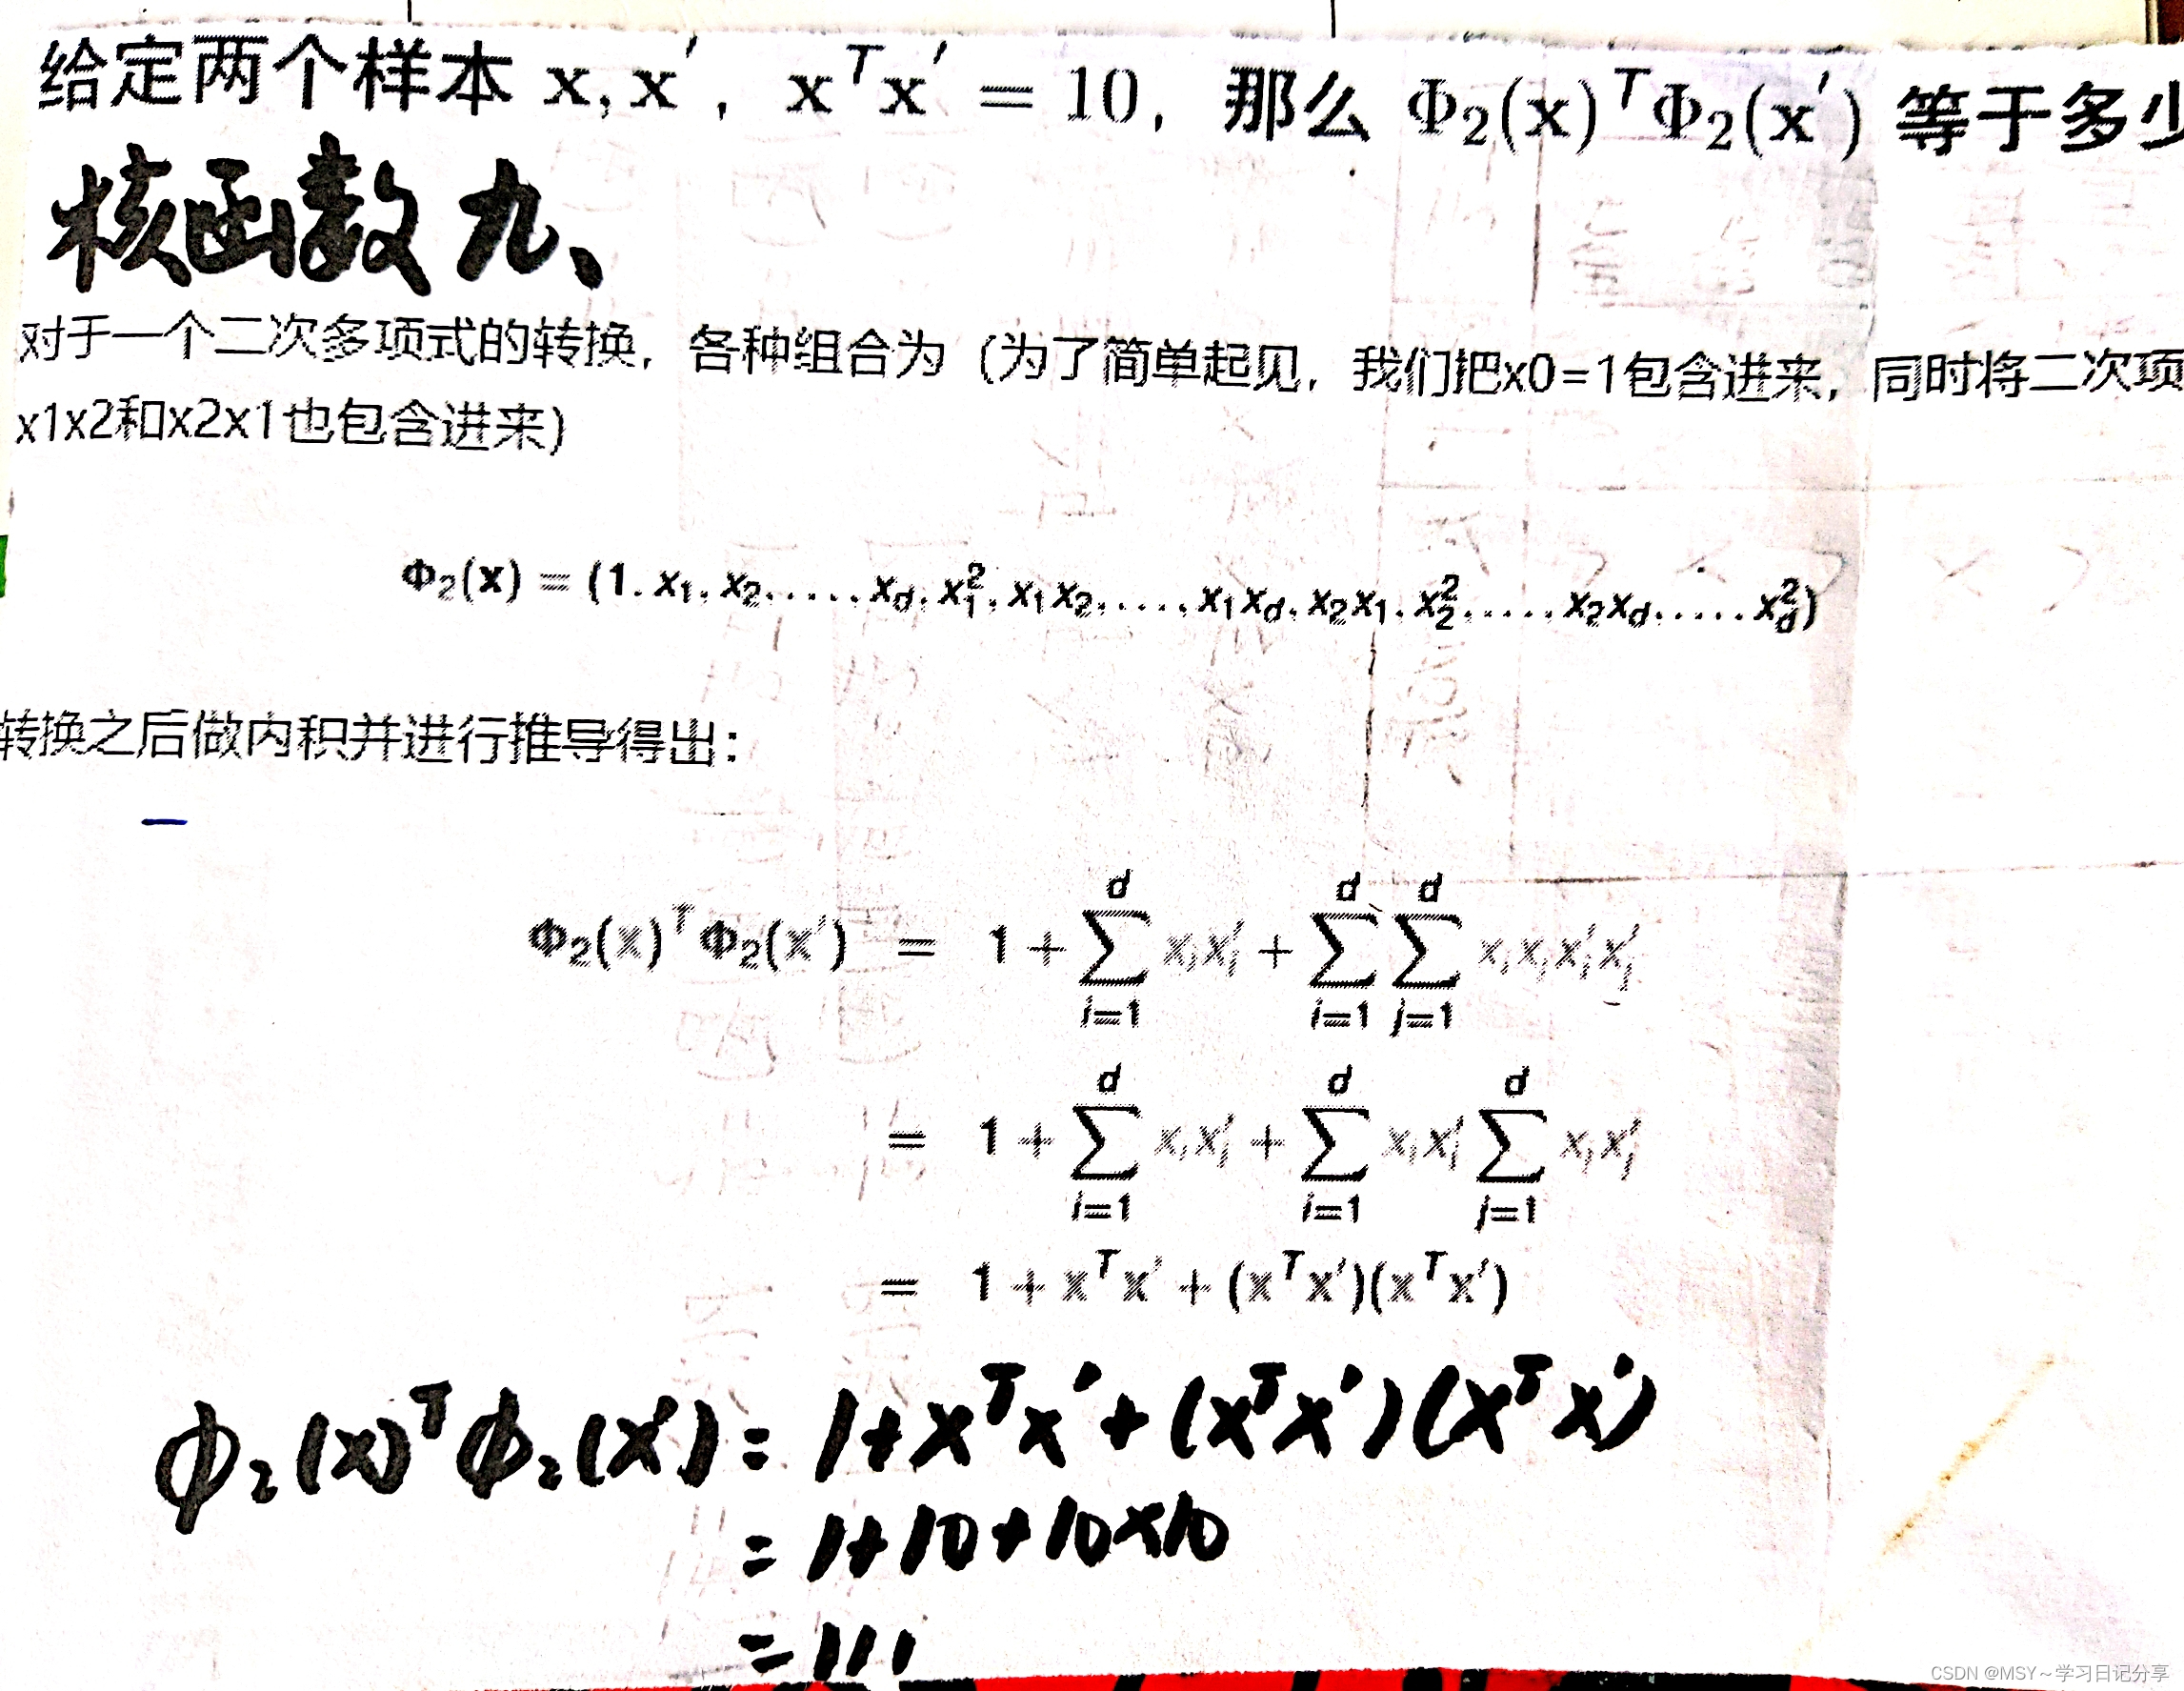 给定两个样本 x, x′, xᵀx′ = 10, 那么 Φ₂(x)ᵀΦ₂(x′) 等于多少
核函数 九、
对于一个二次多项式的转换，各种组合为（为了简单起见，我们把x0=1包含进来，同时将二次项
x1x2和x2x1也包含进来）
Φ₂(x) = (1, x₁, x₂, ..., x_d, x₁², x₁x₂, ..., x₁x_d, x₂x₁, x₂², ..., x₂x_d, ..., x_d²)
转换之后做内积并进行推导得出：
Φ₂(x)ᵀΦ₂(x′) = 1 + ∑_{i=1}^{d} x_i x′_i + ∑_{i=1}^{d} ∑_{j=1}^{d} x_i x_j x′_i x′_j
= 1 + ∑_{i=1}^{d} x_i x′_i + ∑_{i=1}^{d} x_i x′_i ∑_{j=1}^{d} x_j x′_j
= 1 + xᵀx′ + (xᵀx′)(xᵀx′)
Φ₂(x)ᵀΦ₂(x′) = 1+xᵀx′+(xᵀx′)(xᵀx′)
= 1+10+10×10
= 111
CSDN @MSY～学习日记分享